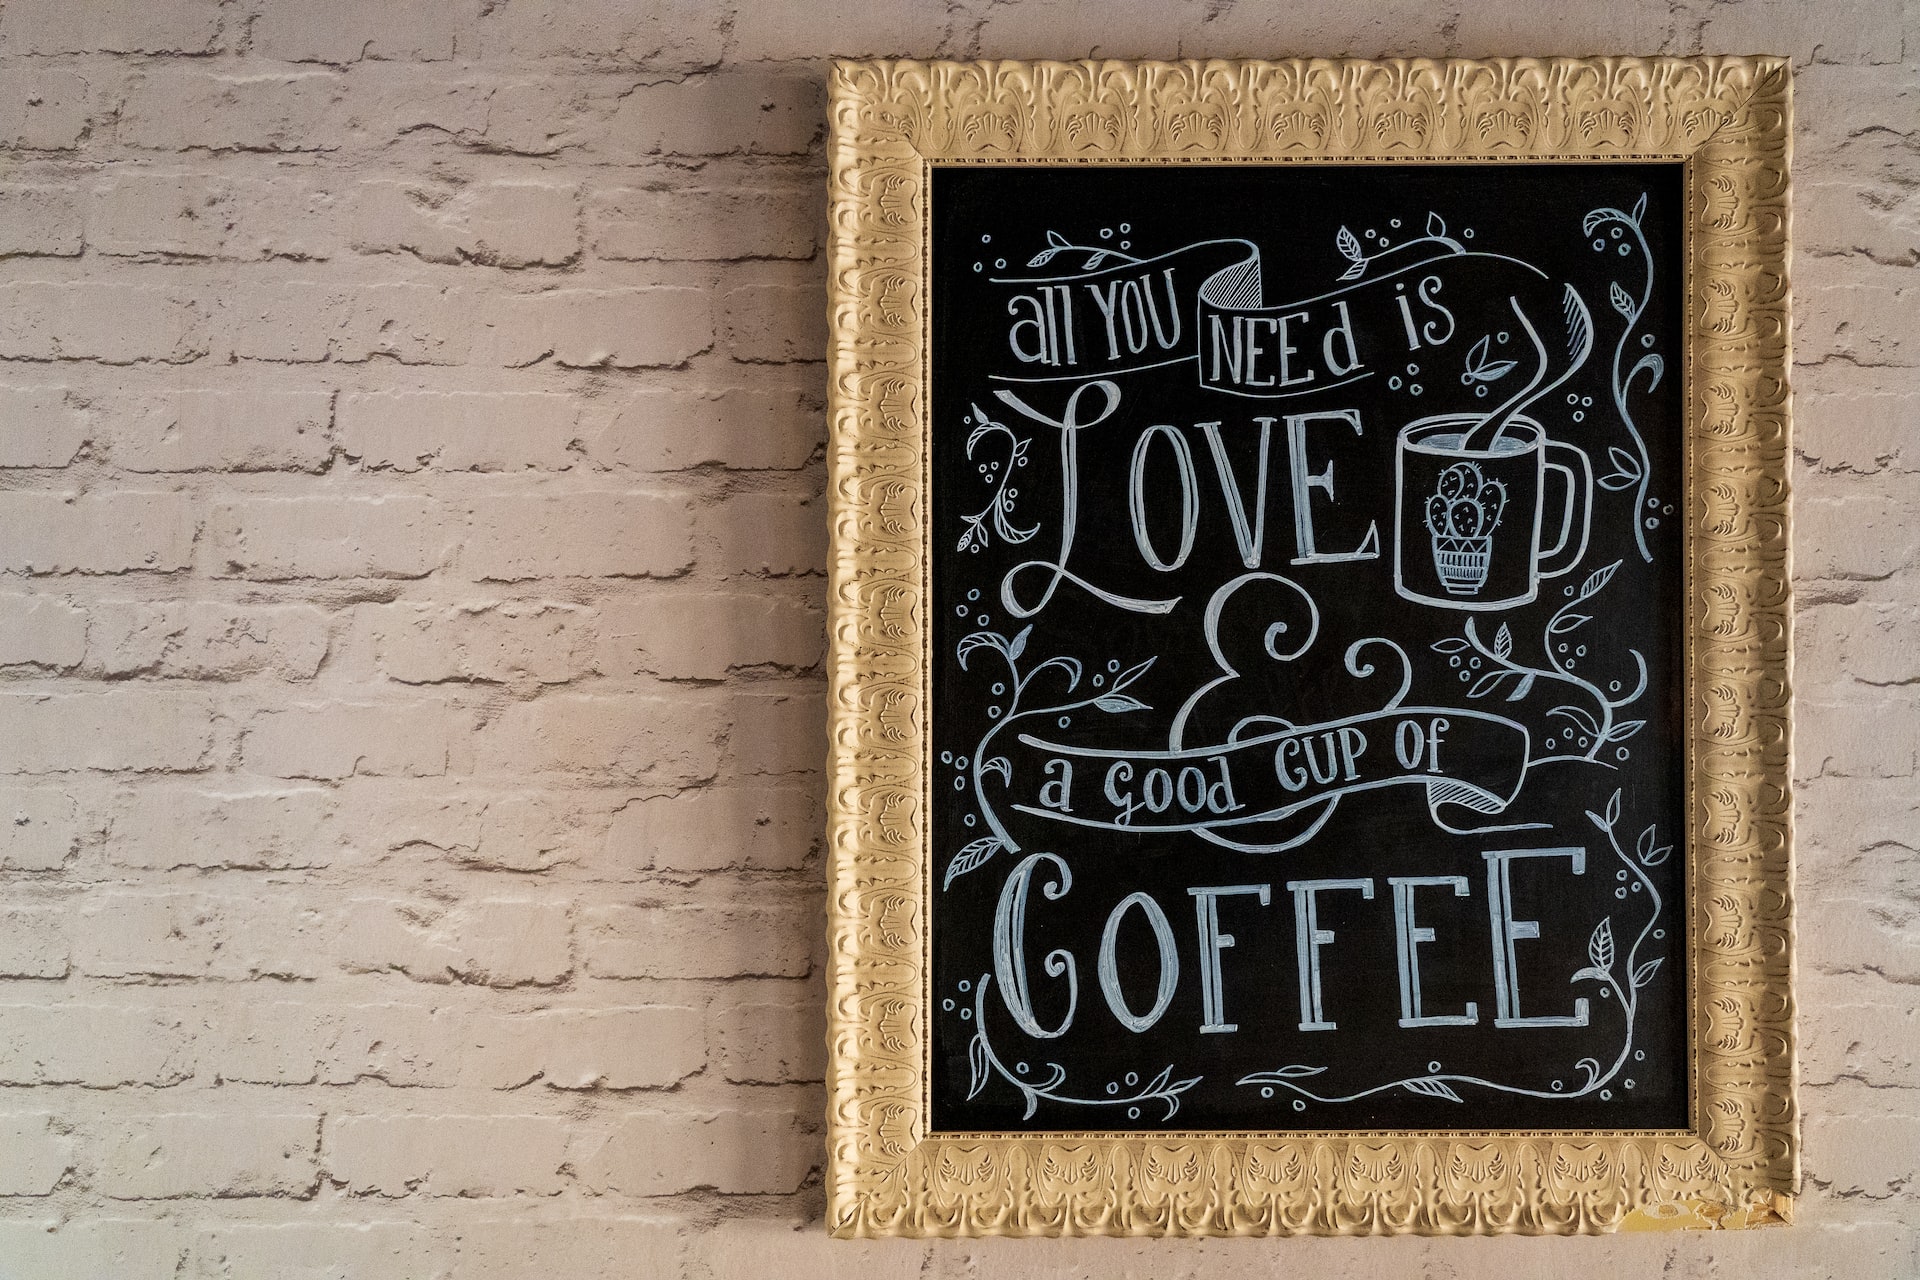 all YOU NEEd is
LOVE
&
a good CUP Of
COFFEE